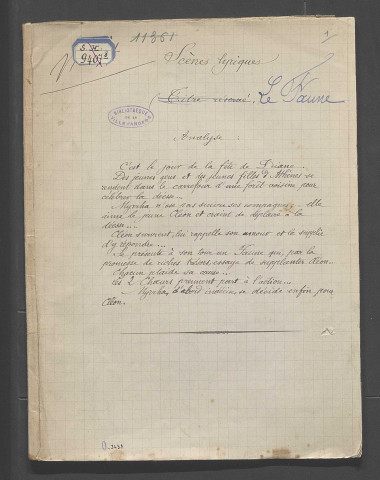 11361
1
S. Vc.
9407 8
Scènes lyriques
Titre réservé. Le Faune
BIBLIOTHÈQUE
DE LA
Analyse
C'est le jour de la fête de Diane.
Des jeunes gens et des jeunes filles d'Athènes se
rendent dans le carrefour d'une forêt voisine pour
célébrer la déesse...
Myrrha n'ose pas suivre ses compagnes. Elle
aime le jeune Cléon et craint de déplaire à la
déesse...
Cléon survient, lui rappelle son amour et la supplie
d'y répondre...
Se présente à son tour un Faune qui, par la
promesse de riches trésors, essaye de supplanter Cléon.
Chacun plaide sa cause...
Les 2 Chœurs prennent part à l'action...
Myrrha, d'abord indécise, se décide enfin pour
Cléon.